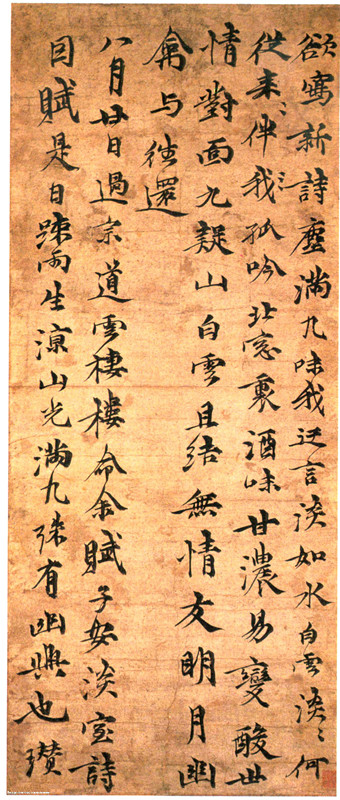 欲寫新詩塵滿几味我迂言淡如水白雲淡ゝ何
從来ゝ伴我孤吟北窓裏酒味甘濃易變酸世
情對面九疑山白雲且結無情友明月幽
禽与往還
八月廿日過宗道雲棲樓命余賦子安淡室詩
因賦是日疎雨生涼山光滿几殊有幽興也瓚